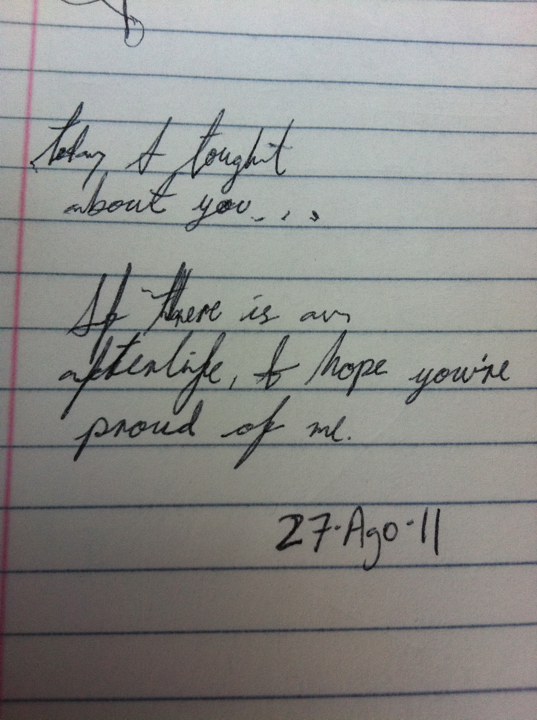 today I tought
about you...
If there is an
afterlife, I hope you're
proud of me.
27·Ago·11